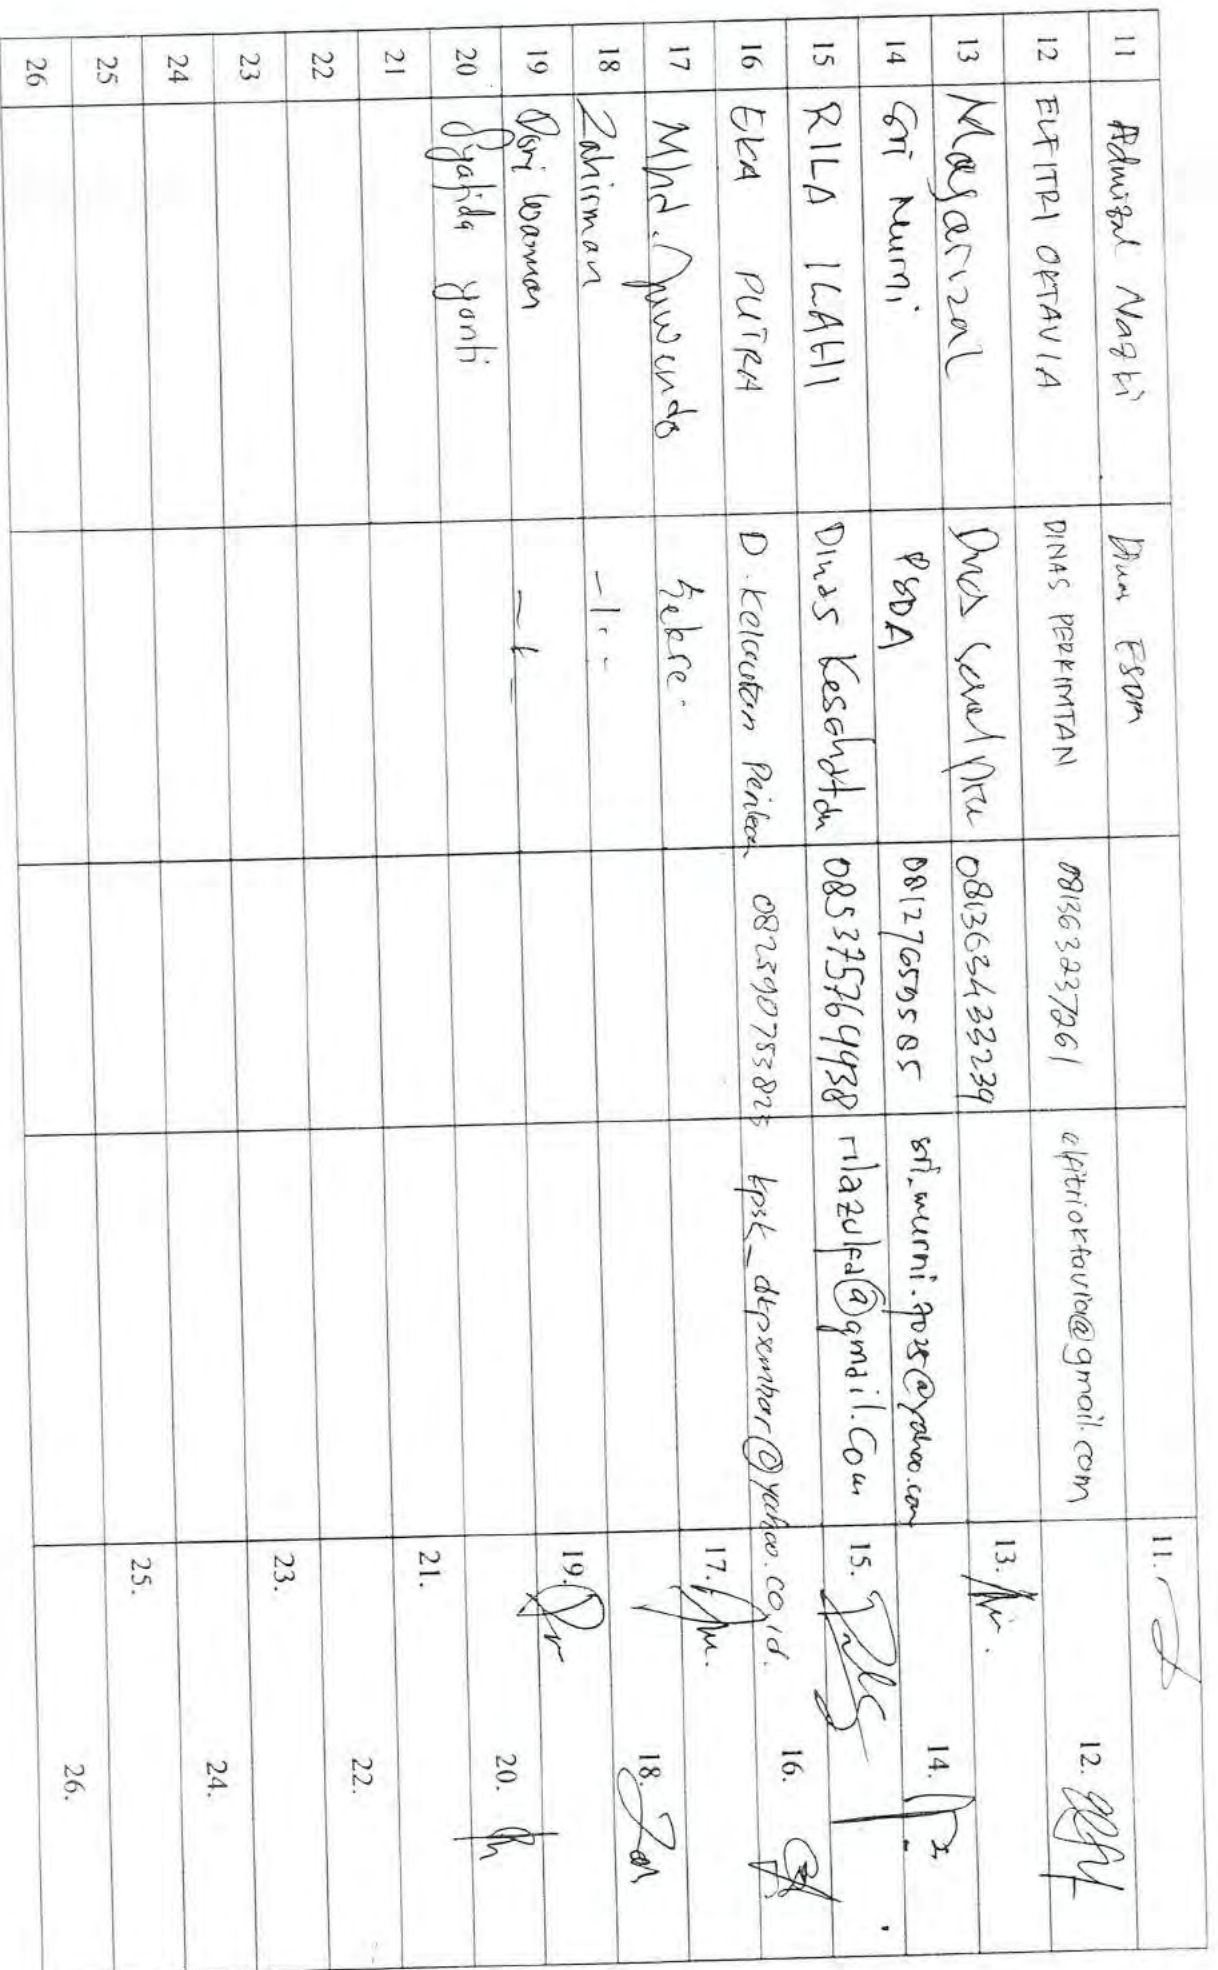 11 Admizal Nazki Dinas ESDM 11.
12 ELFITRI OKTAVIA DINAS PERKIMTAN 081363237261 elfitrioktavia@gmail.com 12.
13 Masrizal Dinas 081363433239 13.
14 Sri Murni PSDA 081276595885 sri_murni.7025@yahoo.com 14.
15 RILA ILAHI Dinas Kesehatan 085375764938 rilazulfa@gmail.com 15.
16 EKA PUTRA D. Kelautan Perikan kpsk_dkpsumbar@yahoo.co.id. 16.
17 Mhd. 17.
18 Zahirman 18.
19 Doni 19.
20 Syafida Yanti 20.
21 21.
22 22.
23 23.
24 24.
25 25.
26 26.